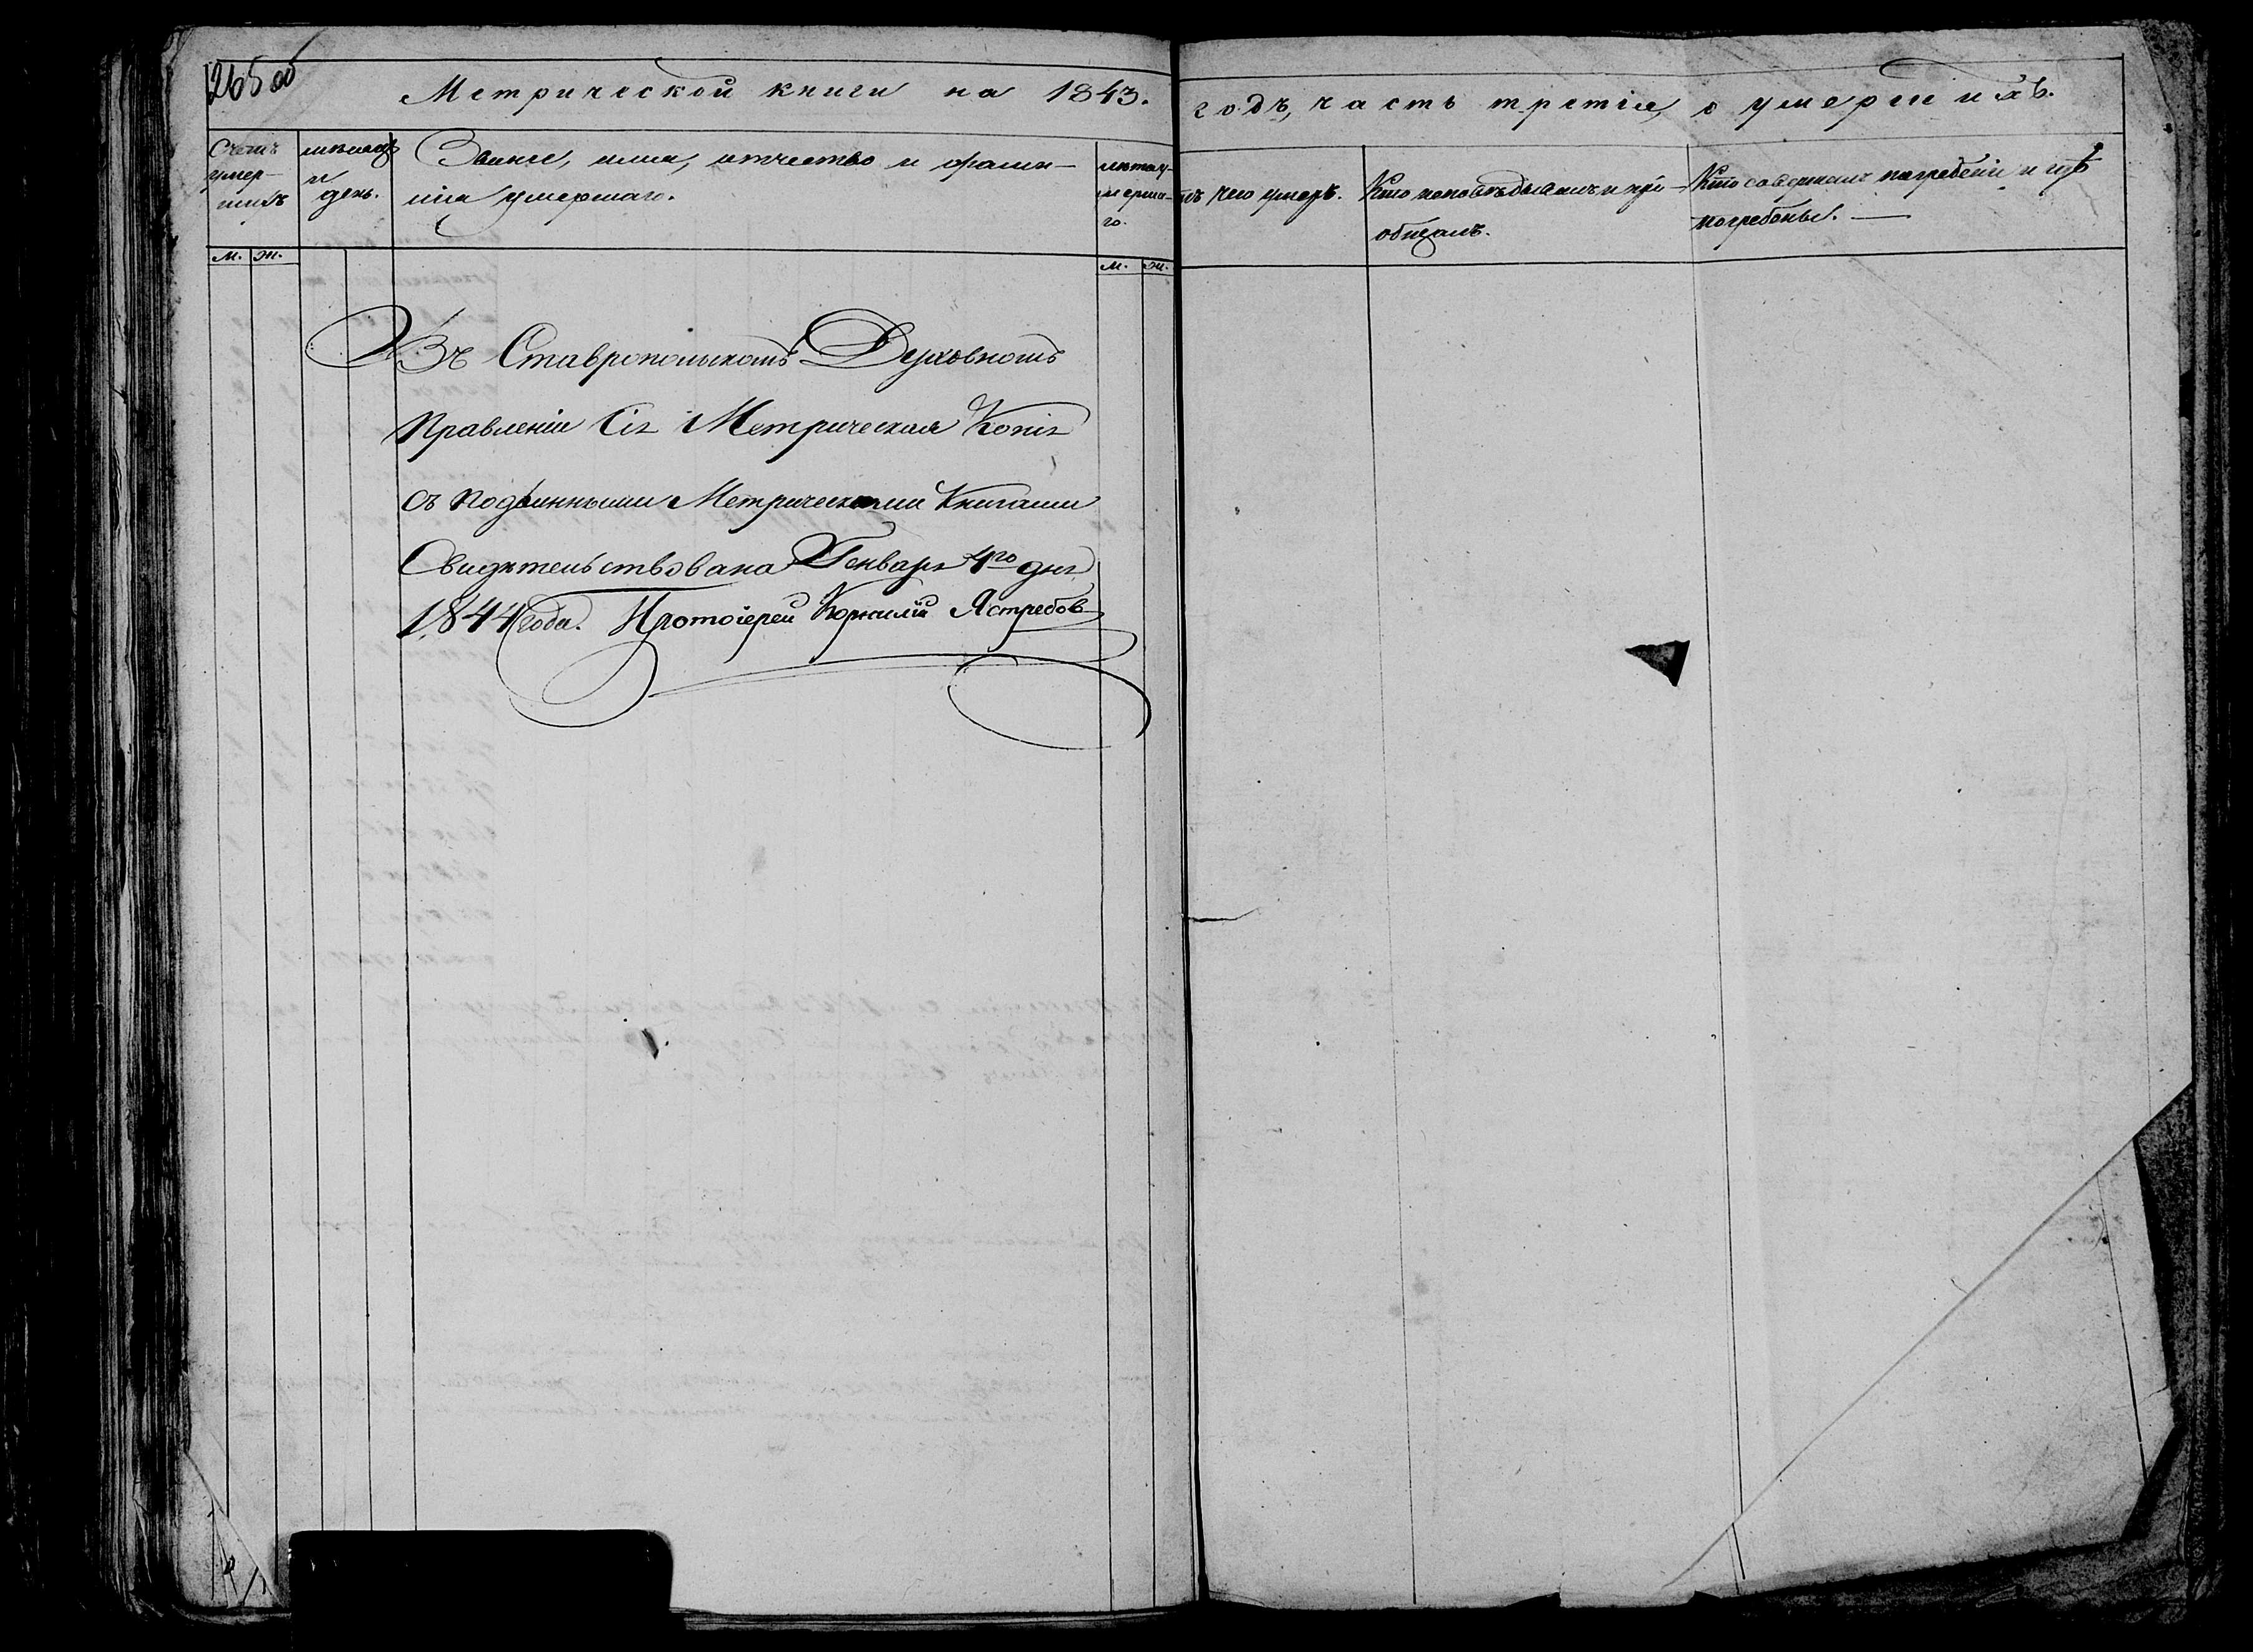 265 об
Метрической книги на 1843. годъ, часть третія, о умершихъ.
Счетъ умер-шихъ
мѣсяцъ и день.
Званіе, имя, отчество и фамил-
лія умершаго.
лѣта у-
мерша-
го.
отъ чего умеръ.
Кто исповѣдывалъ и прі-
общалъ.
Кто совершалъ погребеніе и гдѣ
погребены.
м. ж.
м. ж.
Въ Ставропольскомъ Духовномъ
Правленіи Сія Метрическая Копія
съ подлинными Метрическими Книгами
Свидѣтельствована Генваря 4го дня
1844 года. Протоіерей Корнилій Ястребов